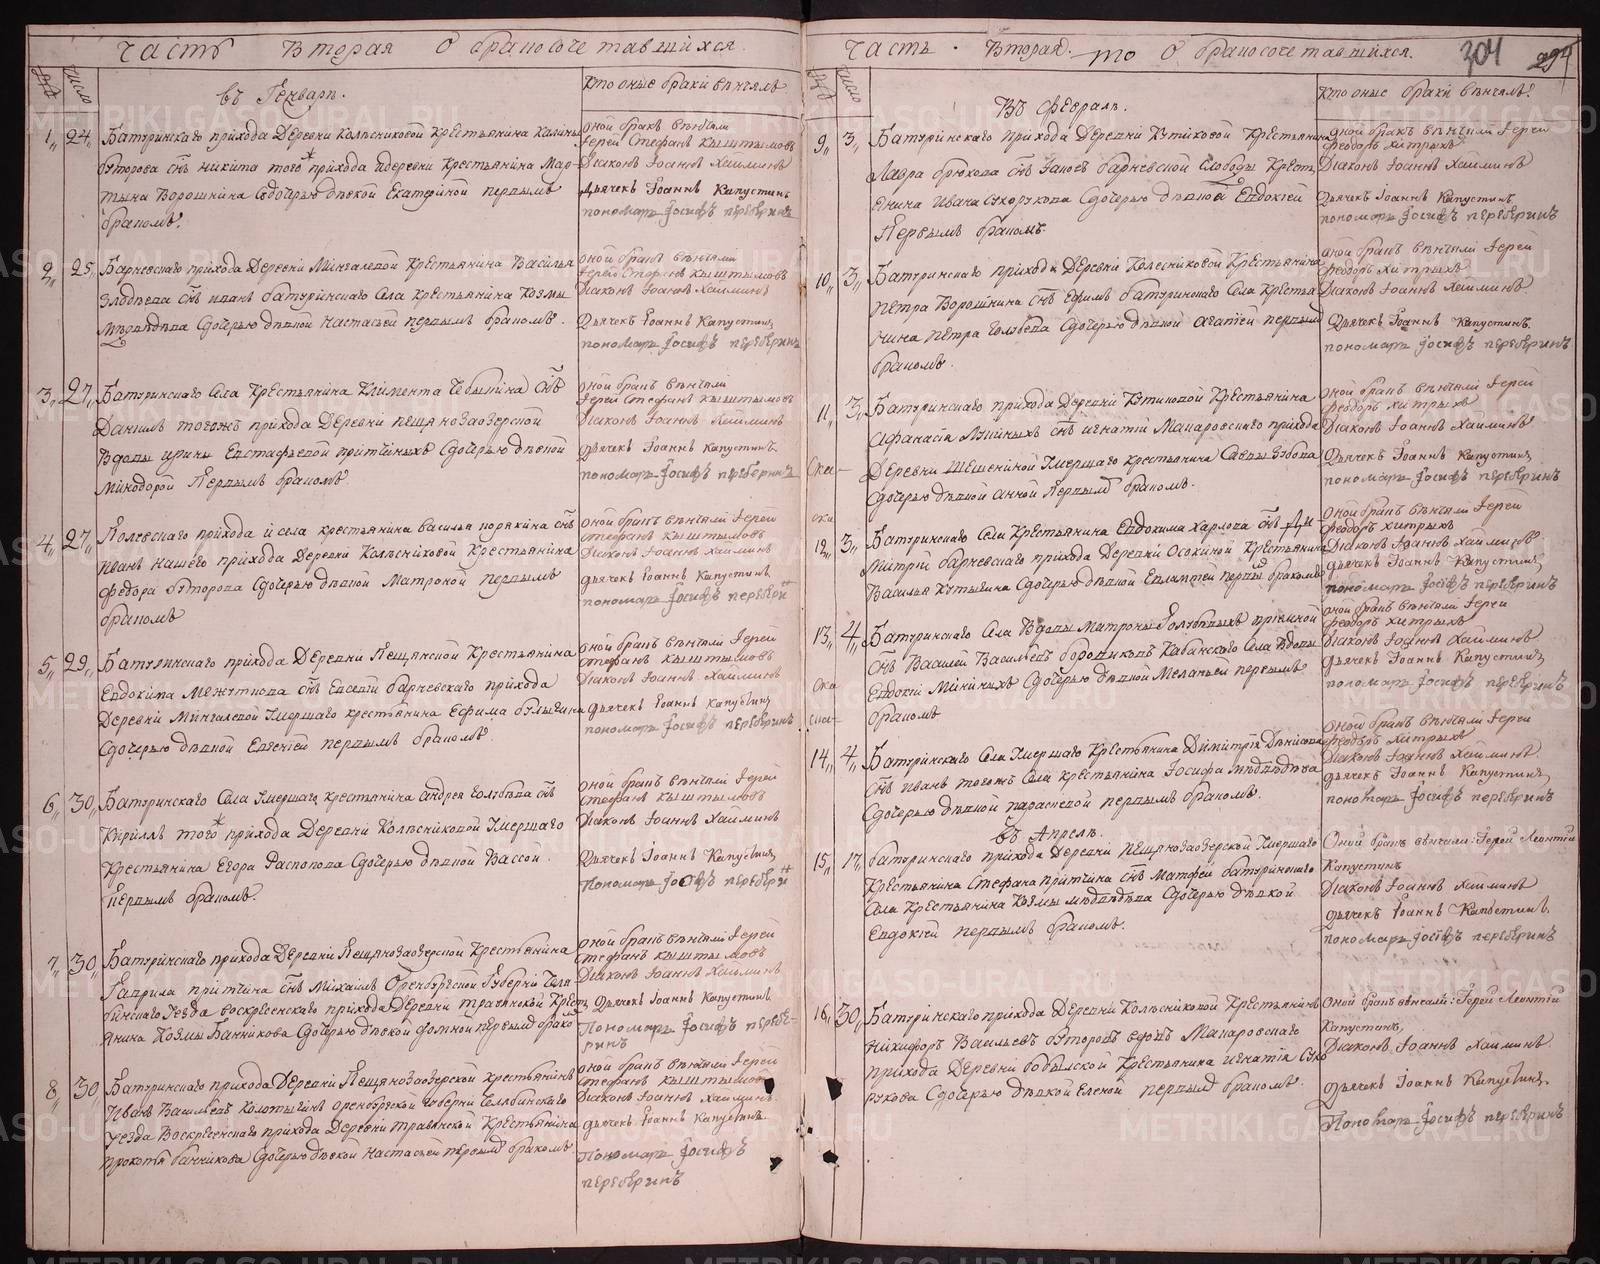 Часть Вторая О бракосочетавшихся.
число
въ Генварѣ.
Кто оные браки вѣнчалъ
1, 24, Батуринскаго прихода Деревни Колѣсниковой Крестьянина Калины
Второва снъ Никита того* прихода Крестьянина Мар-
тына Ворошнина Сдочерью дѣвкой Екатериной первымъ
бракомъ.
оной бракъ вѣнчали
Іерей Стефанъ Кыштымовъ
Діаконъ Іоаннъ Хайминъ
Дьячекъ Іоаннъ Капустинъ
пономарь Іосифъ перебринъ
2, 25, Барневскаго прихода Деревни Мингалевой Крестьянина Василья
снъ иванъ батуринскаго Села крестьянина Козмы
Медвѣдева Сдочерью дѣвкой Настасьей первымъ бракомъ.
оной бракъ вѣнчали
Іерей Стефанъ Кыштымовъ
Діаконъ Іоаннъ Хайминъ
Дьячекъ Іоаннъ Капустинъ
пономарь Іосифъ перебринъ
3, 27, Батуринскаго Села Крестьянина Климента снъ
Данилъ тогожъ прихода Деревни пещянозаозерской
Вдовы ирины Евстафьевой притчиныхъ Сдочерью дѣвкой
Минодорой Первымъ бракомъ.
оной бракъ вѣнчали
Іерей Стефанъ Кыштымовъ
Діаконъ Іоаннъ Хайминъ
дьячекъ Іоаннъ Капустинъ
пономарь Іосифъ перебринъ
4, 27, прихода и села крестьянина василья порякина снъ
иванъ нашего прихода Деревни Колѣсниковой Крестьянина
Федора Второва Сдочерью дѣвкой Матроной первымъ
бракомъ
оной бракъ вѣнчали Іерей
стефанъ Кыштымовъ
Діаконъ Іоаннъ Хайминъ
дьячекъ Іоаннъ Капустинъ
пономарь Іосифъ перебри
5, 29, Батуринскаго прихода Деревни Пещянской Крестьянина
Евдокима Межутнова снъ Евсевій барневскаго прихода
Деревни Мингалевой Умершаго крестьянина Ефима булыгина
Сдочерью дѣвкой Евгеніей первымъ бракомъ.
оной бракъ вѣнчали Іерей
стефанъ Кыштымовъ
Діаконъ Іоаннъ Хайминъ
дьячекъ Іоаннъ Капустинъ
пономарь Іосифъ перебринъ
6, 30, Батуринскаго Села Умершаго крестьянина андрея голубева снъ
Кириллъ того* прихода Деревни Колѣсниковой Умершаго
Крестьянина Егора Распопова Сдочерью дѣвкой Вассой
Первымъ бракомъ.
оной бракъ вѣнчали Іерей
Стефанъ Кыштымовъ
Діаконъ Іоаннъ Хайминъ
Дьячекъ Іоаннъ Капустинъ
Пономарь Іосифъ перебри
7, 30, Батуринскаго прихода Деревни Пещянозаозерской Крестьянина
Гаврила притчина снъ Михаилъ Оренбургской Губерніи Челя
бинскаго Уезда воскресенскаго прихода Деревни травянской Крест
янина Козмы Банникова Сдочерью дѣвкой домной первымъ бракомъ
оной бракъ вѣнчали Іерей
Стефанъ Кыштымовъ
Діаконъ Іоаннъ Хайминъ
Дьячекъ Іоаннъ Капустинъ
Пономарь Іосифъ перебе-
ринъ
8, 30, Батуринскаго прихода Деревни Пещянозаозерской крестьянинъ
Иванъ Васильевъ Колотыгинъ оренбургской губерніи Челябинскаго
уезда Воскресенскаго прихода Деревни травянской Крестьянина
прокопья банникова Сдочерью дѣвкой Настасьей первымъ бракомъ
оной бракъ вѣнчали Іерей
Стефанъ Кыштымовъ
Діаконъ Іоаннъ Хайминъ
дьячекъ Іоаннъ Капустинъ
Пономарь Іосифъ
перебринъ
Часть. Вторая. О бракосочетавшихся. 304
число
Въ Февралѣ.
Кто оные браки вѣнчалъ?
9, 3, Батуринскаго прихода Деревни Кутиковой Крестьянина
Лавра брюхова снъ барневской Слободы Крест
янина Ивана Сухорукова Сдочерью дѣвкой Евдокіей
Первымъ бракомъ.
оной бракъ вѣнчали Іерей
феодоръ хитрыхъ
Діаконъ Іоаннъ Хайминъ
Дьячекъ Іоаннъ Капустинъ
пономарь Іосифъ перебринъ
10, 3, Батуринскаго прихода Деревни Колесниковой Крестьянина
Петра Ворошнина снъ Ефимъ батуринскаго Села Крестья
нина Петра голубева Сдочерью дѣвкой агатіей первымъ
бракомъ.
оной бракъ вѣнчали Іерей
Феодоръ хитрыхъ
Діаконъ Іоаннъ Хайминъ
Дьячекъ Іоаннъ Капустинъ.
пономарь Іосифъ перебринъ
11, 3, Батуринскаго прихода Деревни Кутиковой Крестьянина
афанасія Лупиныхъ снъ игнатій Макаровскаго прихода
Деревни Умершаго крестьянина Савы
Сдочерью дѣвкой анной Первымъ бракомъ.
оной бракъ вѣнчали Іерей
феодоръ хитрыхъ
Діаконъ Іоаннъ Хайминъ
Дьячекъ Іоаннъ Капустинъ
пономарь Іосифъ перебринъ
12, 3, Батуринскаго Села Крестьянина Евдокима Харлова снъ Ди
митрій барневскаго прихода Деревни Осокиной Крестьянина
Василья Кутыгина Сдочерью дѣвкой Евлампіей первымъ бракомъ
оной бракъ вѣнчали Іерей
феодоръ хитрыхъ
Діаконъ Іоаннъ Хайминъ
дьячекъ Іоаннъ Капустинъ
пономарь Іосифъ перебринъ
13, 4, Батуринскаго Села Вдовы Матроны Голубевыхъ
снъ Василей Васильевъ Кабанскаго Села Вдовы
Евдокіи Мининыхъ Сдочерью дѣвкой Меланьей первымъ
бракомъ
оной бракъ вѣнчали Іерей
феодоръ хитрыхъ
Діаконъ Іоаннъ Хайминъ
дьячекъ Іоаннъ Капустинъ
пономарь Іосифъ перебринъ
14, 4, Батуринскаго Села Умершаго Крестьянина Димитрія Денисова
снъ иванъ тогожъ Села Крестьянина Іосифа медвѣдева
Сдочерью дѣвкой парасковой первымъ бракомъ.
оной бракъ вѣнчали Іерей
феодоръ хитрыхъ
Діаконъ Іоаннъ Хайминъ
дьячекъ Іоаннъ Капустинъ
пономарь Іосифъ перебринъ
Въ Апрелѣ.
15, 17, батуринскаго прихода Деревни пещянозаозерской Умершаго
Крестьянина Стефана притчина снъ Матфей батуринскаго
Села Крестьянина Козмы медвѣдева Сдочерью дѣвкой
Евдокіей первымъ бракомъ.
Оной бракъ вѣнчали: Іерей Леонтій
Капустинъ
Діаконъ Іоаннъ Хайминъ
дьячекъ Іоаннъ Капустинъ.
пономарь Іосифъ перебринъ
16, 30, Батуринскаго прихода Деревни Колѣсниковой Крестьянинъ
Никифоръ Васильевъ Второвъ вдовъ Макаровскаго
прихода Деревни бобылской Крестьянина игнатія Сухо
рукова Сдочерью дѣвкой Еленой первымъ бракомъ.
Оной бракъ вѣнчали: Іерей Леонтій
Капустинъ,
Діаконъ Іоаннъ Хайминъ.
Дьячекъ Іоаннъ Капустинъ.
Пономарь Іосифъ перебринъ